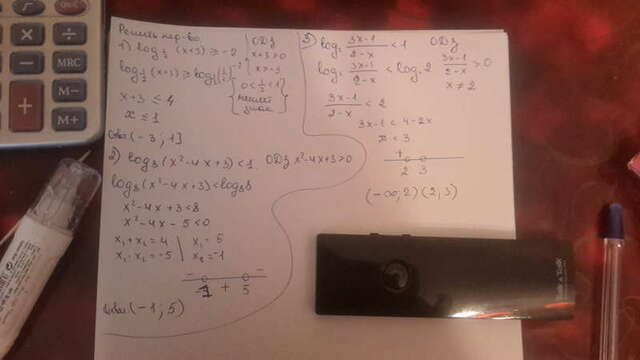 Решить нер-во
1) log½ (x+3) ≥ -2
ОДЗ
x+3>0
x>-3
log½ (x+3) ≥ log½ (½)⁻²
0<½<1
меняем
знак
x+3 ≤ 4
x ≤ 1
(-3; 1]
2) log₈ (x²-4x+3) < 1. ОДЗ x²-4x+3>0
log₈ (x²-4x+3) < log₈8
x²-4x+3<8
x²-4x-5<0
x₁+x₂=4 | x₁=5
x₁·x₂=-5 | x₂=-1
- + -
-1 5
(-1; 5)
3) log₂ (3x-1)/(2-x) < 1 ОДЗ
log₂ (3x-1)/(2-x) < log₂2 (3x-1)/(2-x) > 0
x≠2
(3x-1)/(2-x) < 2
3x-1 < 4-2x
x < 3
+
2 3
(-∞; 2) (2; 3)
MRC
M-
M+
÷
×
-
+